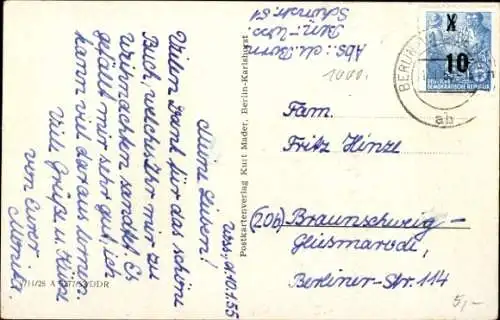 Uess., d. 10.1.55
Meine Lieben!
Vielen Dank für das schöne
Buch, welches Ihr mir zu
Weihnachten sandtet. Es
gefällt mir sehr gut, ich
kann viel daraus lernen.
Viele Grüße u. Küsse
von Eurer
Monika
DDR
Postkartenverlag Kurt Mader, Berlin-Karlshorst
Abs.: M. Born
Schonstr. 81
1000.
X
10
DEMOKRATISCHE REPUBLIK
BERLIN
ab
Fam.
Fritz Hinze
(20b) Braunschweig-
Gliesmarode,
Berliner-Str. 114
5,-